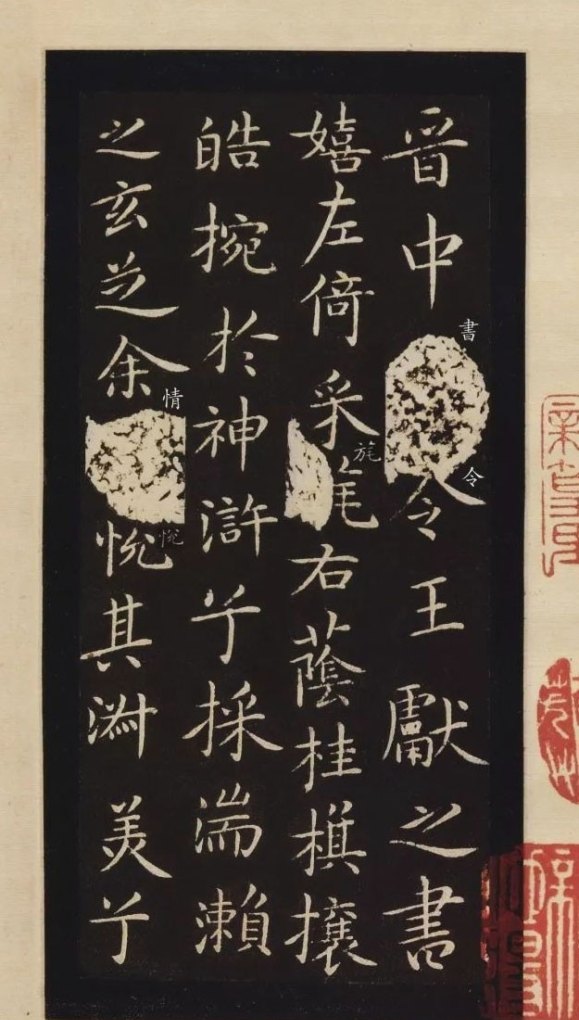 晉中令王獻之書
書
令
嬉左倚采旄右蔭桂棋攘
旄
皓捥於神滸兮採湍瀨
之玄芝余悅其淑美兮
情
悅